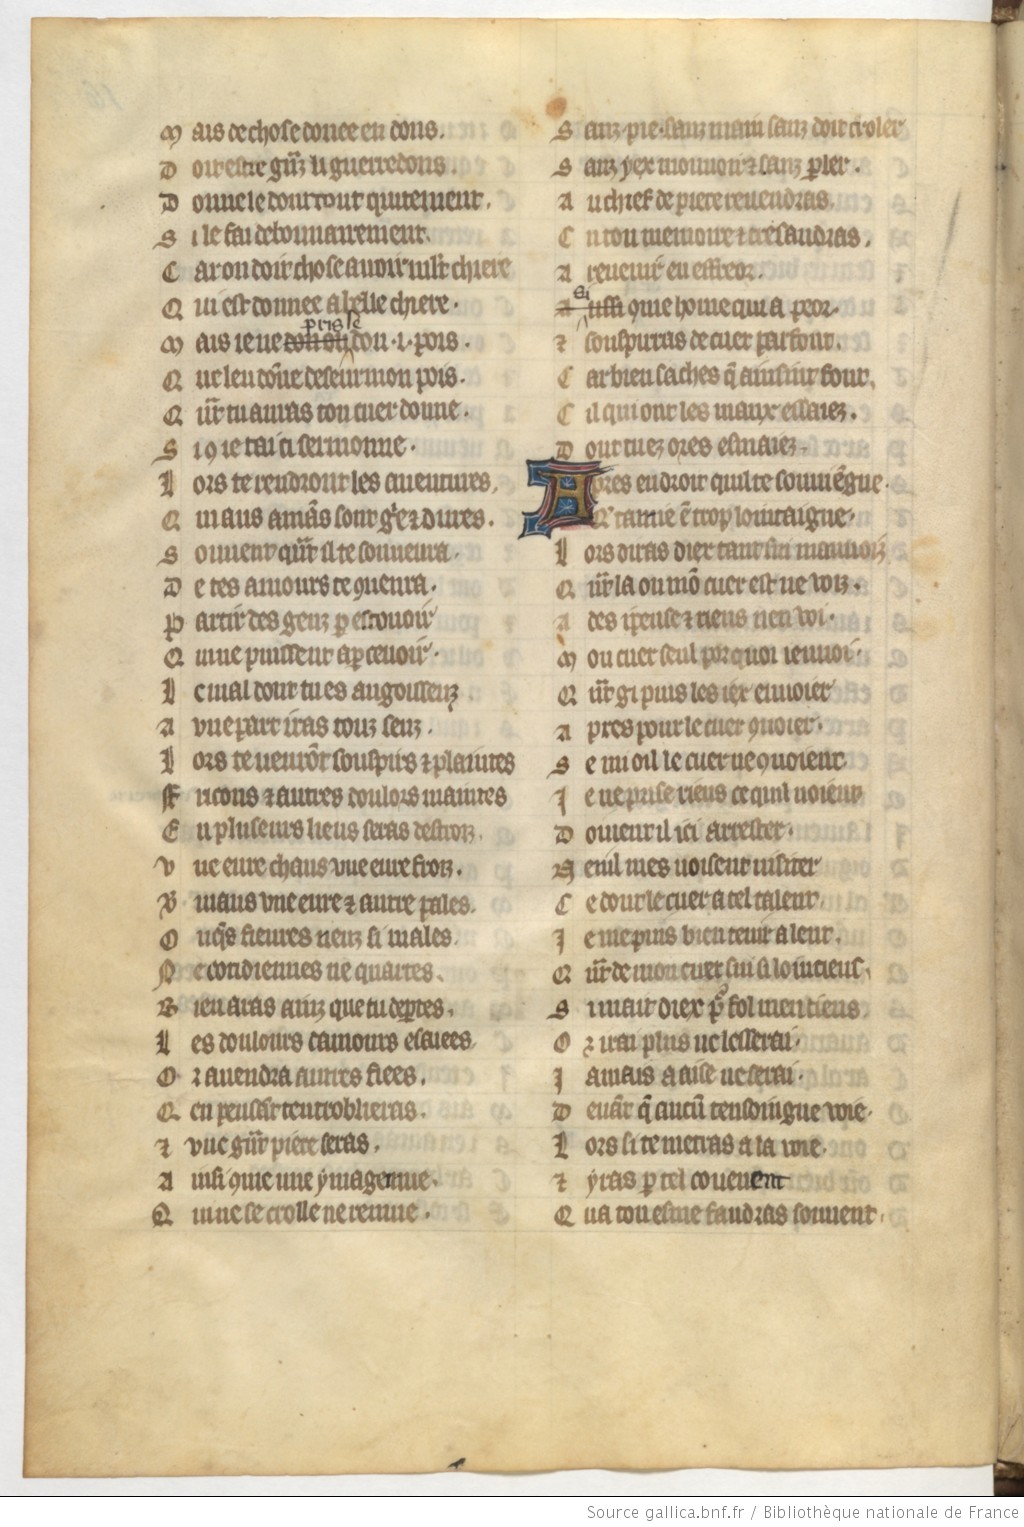 M ais de chose donee en dons.
D oit estre gñz li guerredons.
D onne le dont tout quitement.
S i le fai debonnairement.
C ar on doit chose avoir mlt chiere
Q ui est donnee a belle chiere.
M ais ie ne pris le don .i. pois.
Q ue len dõne deseur mon pois.
Q nt tu auras ton cuer donne.
S i 9 ie tai ci sermonne.
L ors te vendront les aventures,
Q ui aus amãs sont gez & dures.
S ouvent qñt il te sonuenra.
D e tes amours te 9uenra.
P artir des genz p estouoir
Q ui ne puissent apceuoir.
L e mal dont tu es angoisseuz
A vne part iras touz seuz.
L ors te uenrõt souspirs & plaintes
F ricons & autres doulors maintes
E n pluseurs lieus seras destroiz.
V ne eure chaus vne eure froiz.
V miaus vne eure & autre pales.
O nqs fieures neuz si males.
N e cotidiennes ne quartes.
B ien aras ainz que tu departes.
L es doulours damours essaiees.
O r auendra autres fiees.
Q en pensãt tentroblieras.
& vne grãt piece seras.
A insi 9me une ymage mue.
Q ui ne se crolle ne remue.
S anz pie. sanz main sanz doit croler
S anz yex mouuoir & sanz pler.
A u chief de piece reuendras.
E n ton memoire & tresaudras.
A reuenir en effreor.
Si 9me home qui a peor.
& souspirras de cuer parfont.
C ar bien saches q̃ ainsint font.
C il qui ont les maux essaiez.
D ont tu ez ores esmaiez.
A pres en droit quil te souuiẽgne.
Q tamie ẽ trop lointaigne.
L ors diras diex tant sui mauuoiz
Q nt la ou mõ cuer est ne voiz.
A des i pense & riens nen voi.
M on cuer seul porquoi ienuoi.
Q nt gi puis les iex enuoier
A pres pour le cuer 9uoier.
S e mi oil le cuer ne 9uoient
J e ne prise riens ce quil uoient
D oiuent il ici arrester.
N enil mes uoisent uisiter
C e dont le cuer a tel talent.
J e me puis bien tenir a lent.
Q nt de mon cuer sui si lointiens.
S i mait diex por fol men tiens.
O r irai plus ne lesserai.
J amais a aise ne serai.
D euãt q̃ aucũ tensaingne voie.
L ors si te metras a la uoie.
& yras p tel couuenent
Q ua ton esme faudras souuent.
Source gallica.bnf.fr / Bibliothèque nationale de France